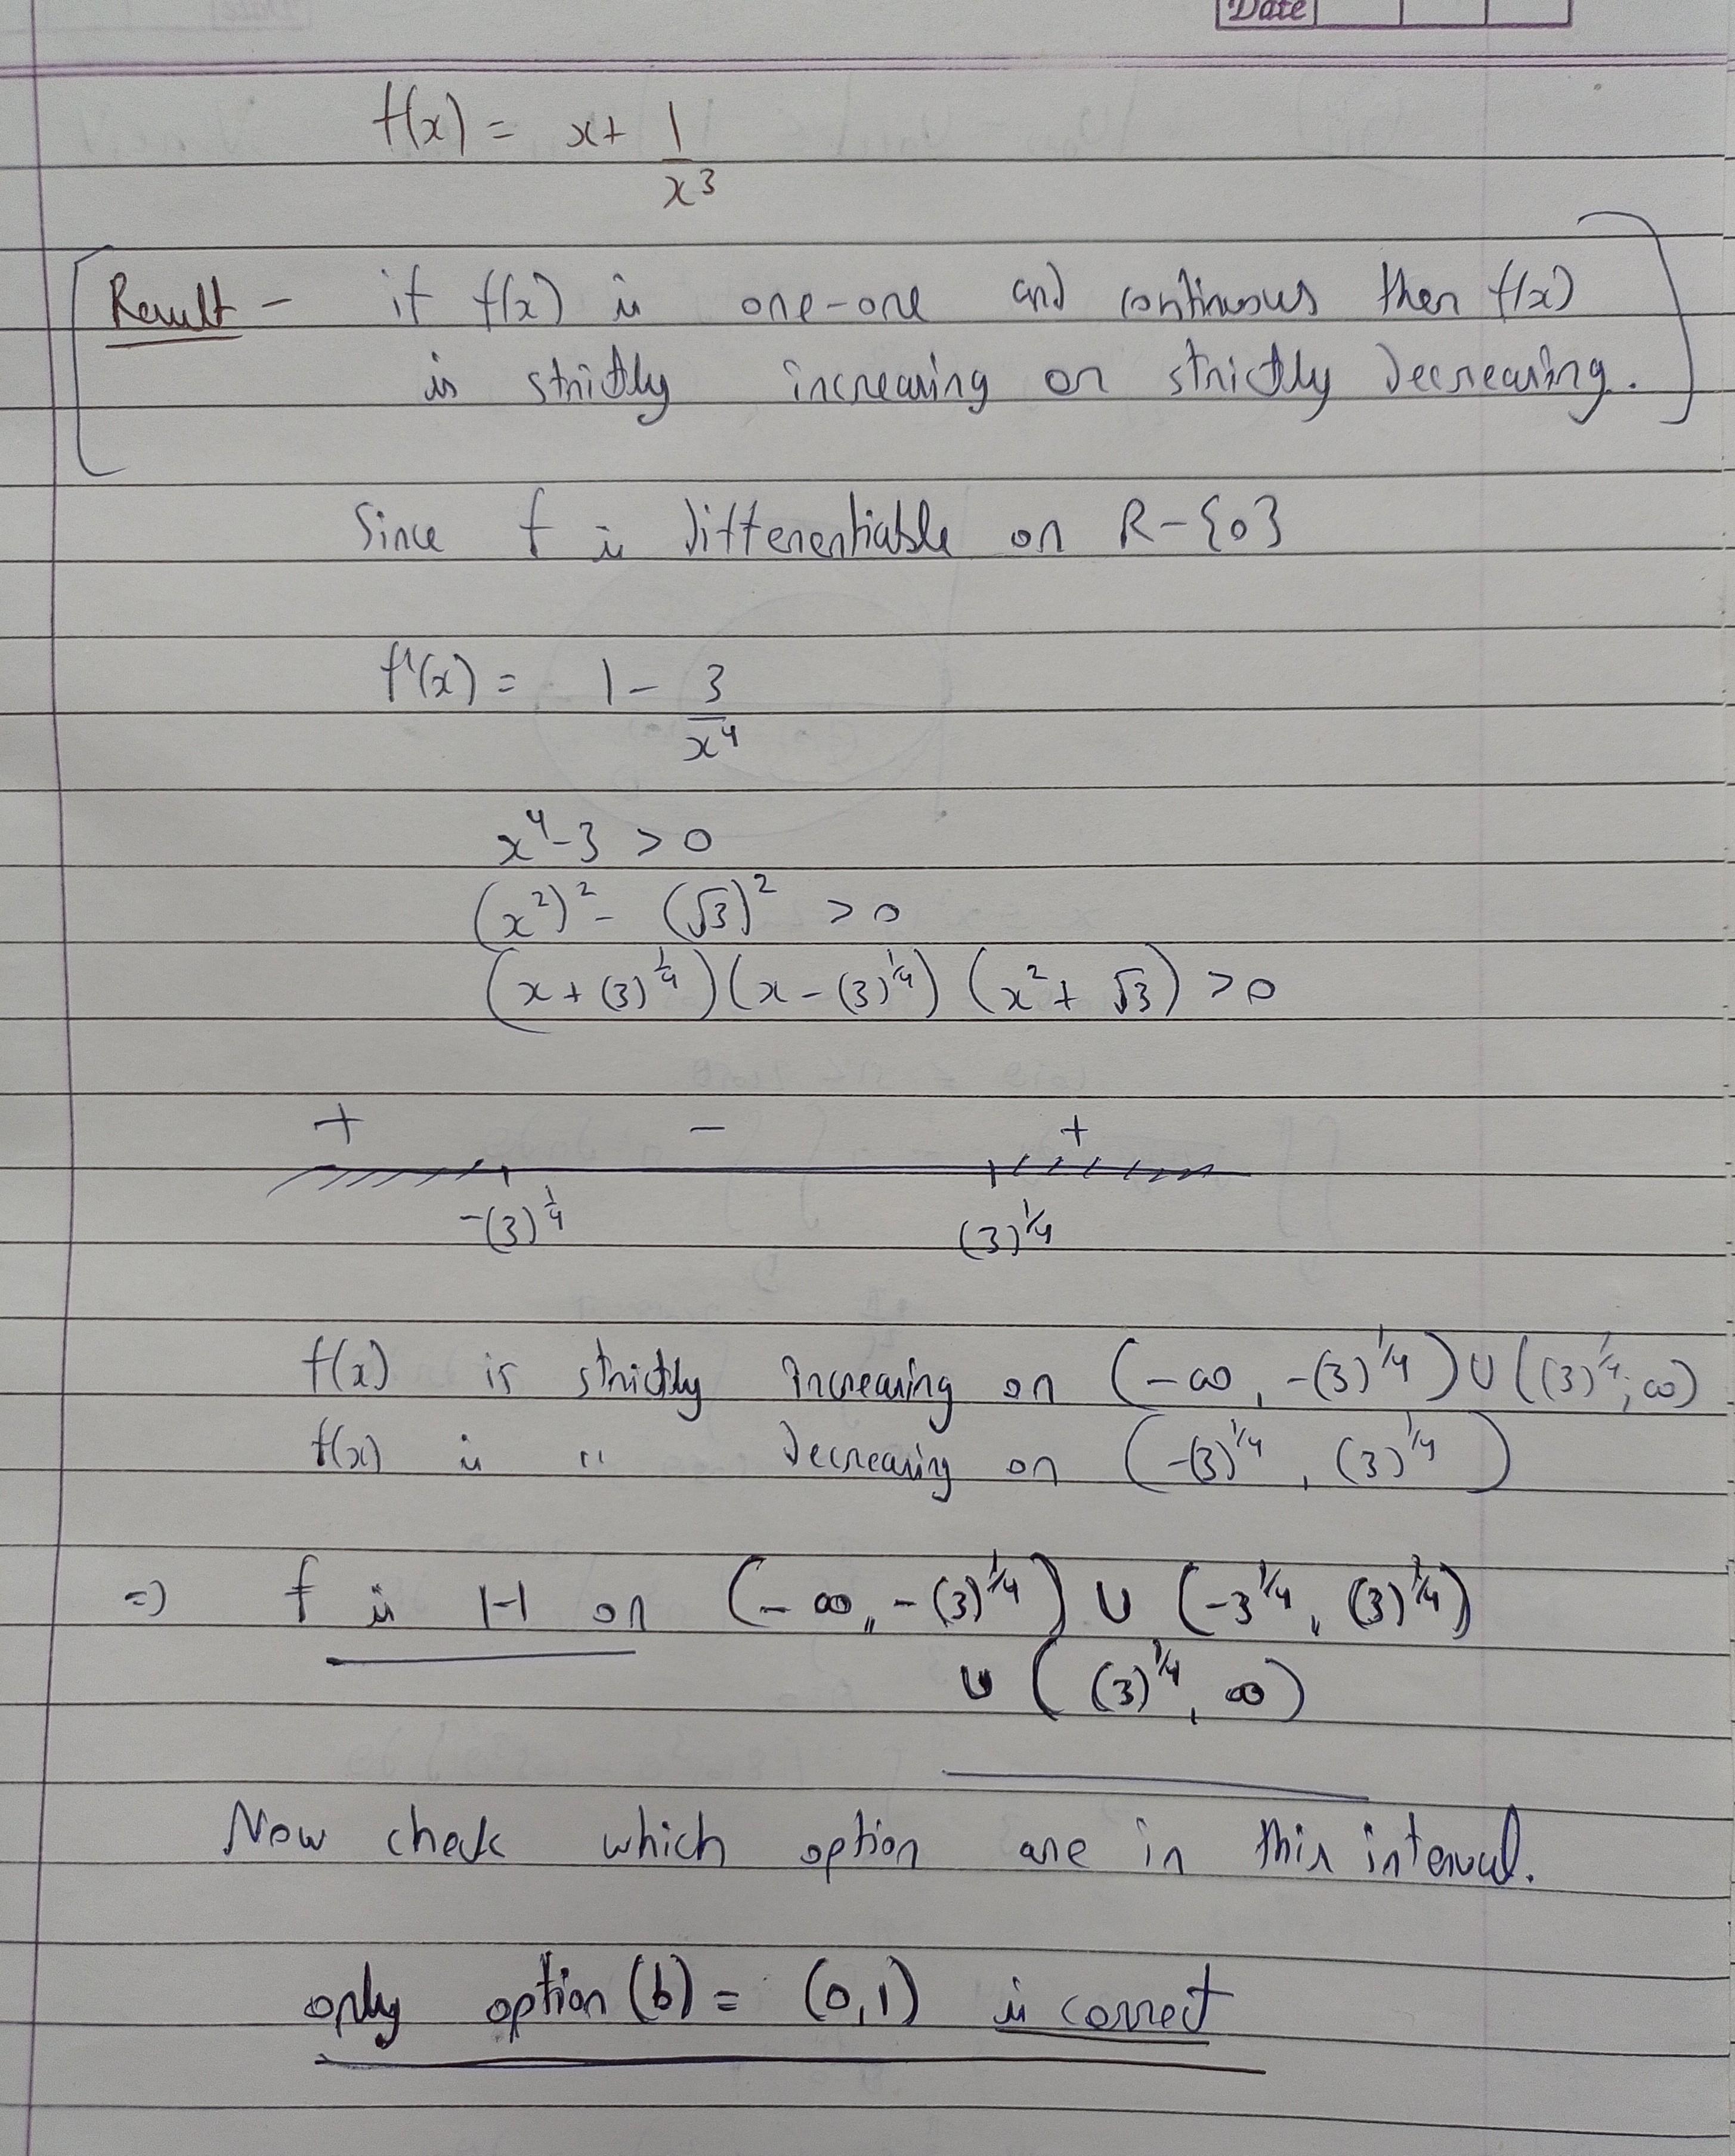 Date
f(x) = x + 1/x³
Result - if f(x) is one-one and continuous then f(x)
is strictly increasing or strictly decreasing.
Since f is differentiable on R-{0}
f'(x) = 1 - 3/x⁴
x⁴-3 > 0
(x²)² - (√3)² > 0
(x + (3)^1/4)(x - (3)^1/4)(x² + √3) > 0
+ - +
-(3)^1/4 (3)^1/4
f(x) is strictly increasing on (-∞, -(3)^1/4) ∪ ((3)^1/4, ∞)
f(x) is " decreasing on (-(3)^1/4, (3)^1/4)
=) f is 1-1 on (-∞, -(3)^1/4) ∪ (-3^1/4, (3)^1/4)
∪ ((3)^1/4, ∞)
Now check which option are in this interval.
only option (b) = (0,1) is correct